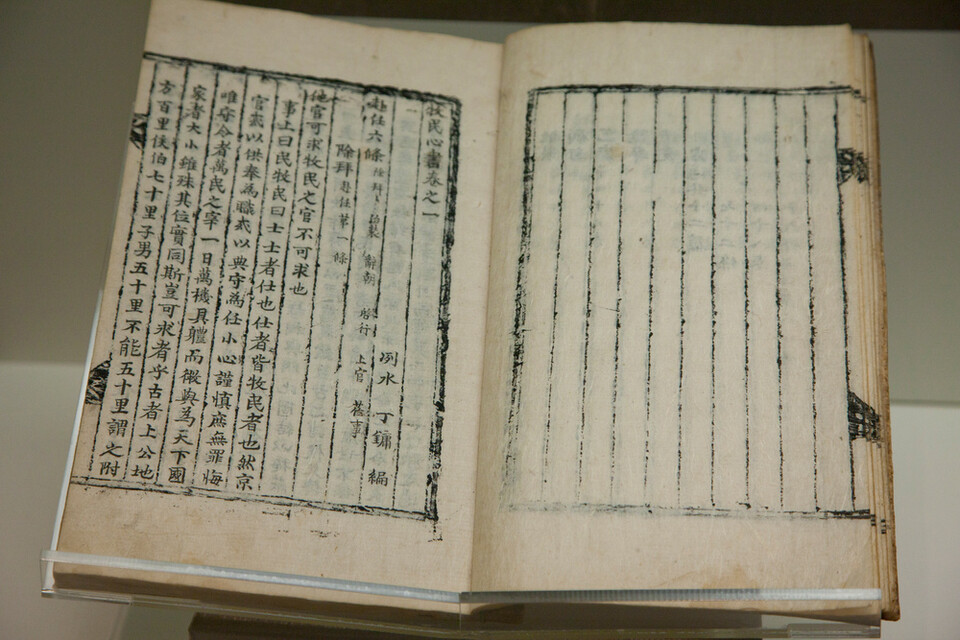 牧民心書卷之一
洌水 丁鏞 編
赴任六條 除拜 治裝 辭朝 啓行 上官 莅事
除拜 赴任第一條
他官可求牧民之官不可求也
事上曰民牧民曰士士者仕也仕者皆牧民者也然京
官或以供奉為職或以典守為任小心謹慎庶無罪悔
唯守令者萬民之宰一日萬機具軆而微與為天下國
家者大小雖殊其位實同斯豈可求者乎古者上公地
方百里侯伯七十里子男五十里不能五十里謂之附